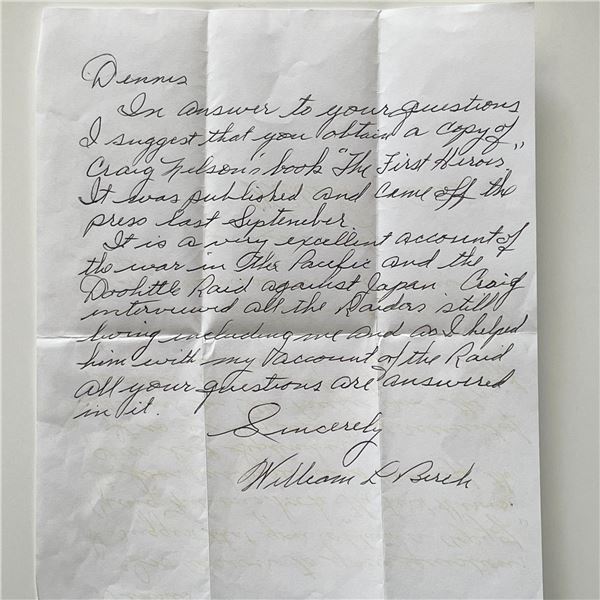 Dennis
In answer to your questions
I suggest that you obtain a copy of
Craig Nelson's book "The First Heros"
It was published and came off the
press last September.
It is a very excellent account of
the war in the Pacific and the
Doolittle Raid against Japan. Craig
interviewed all the Raiders still
living including me and as I helped
him with my account of the Raid
all your questions are answered
in it.
Sincerely
William L Birch